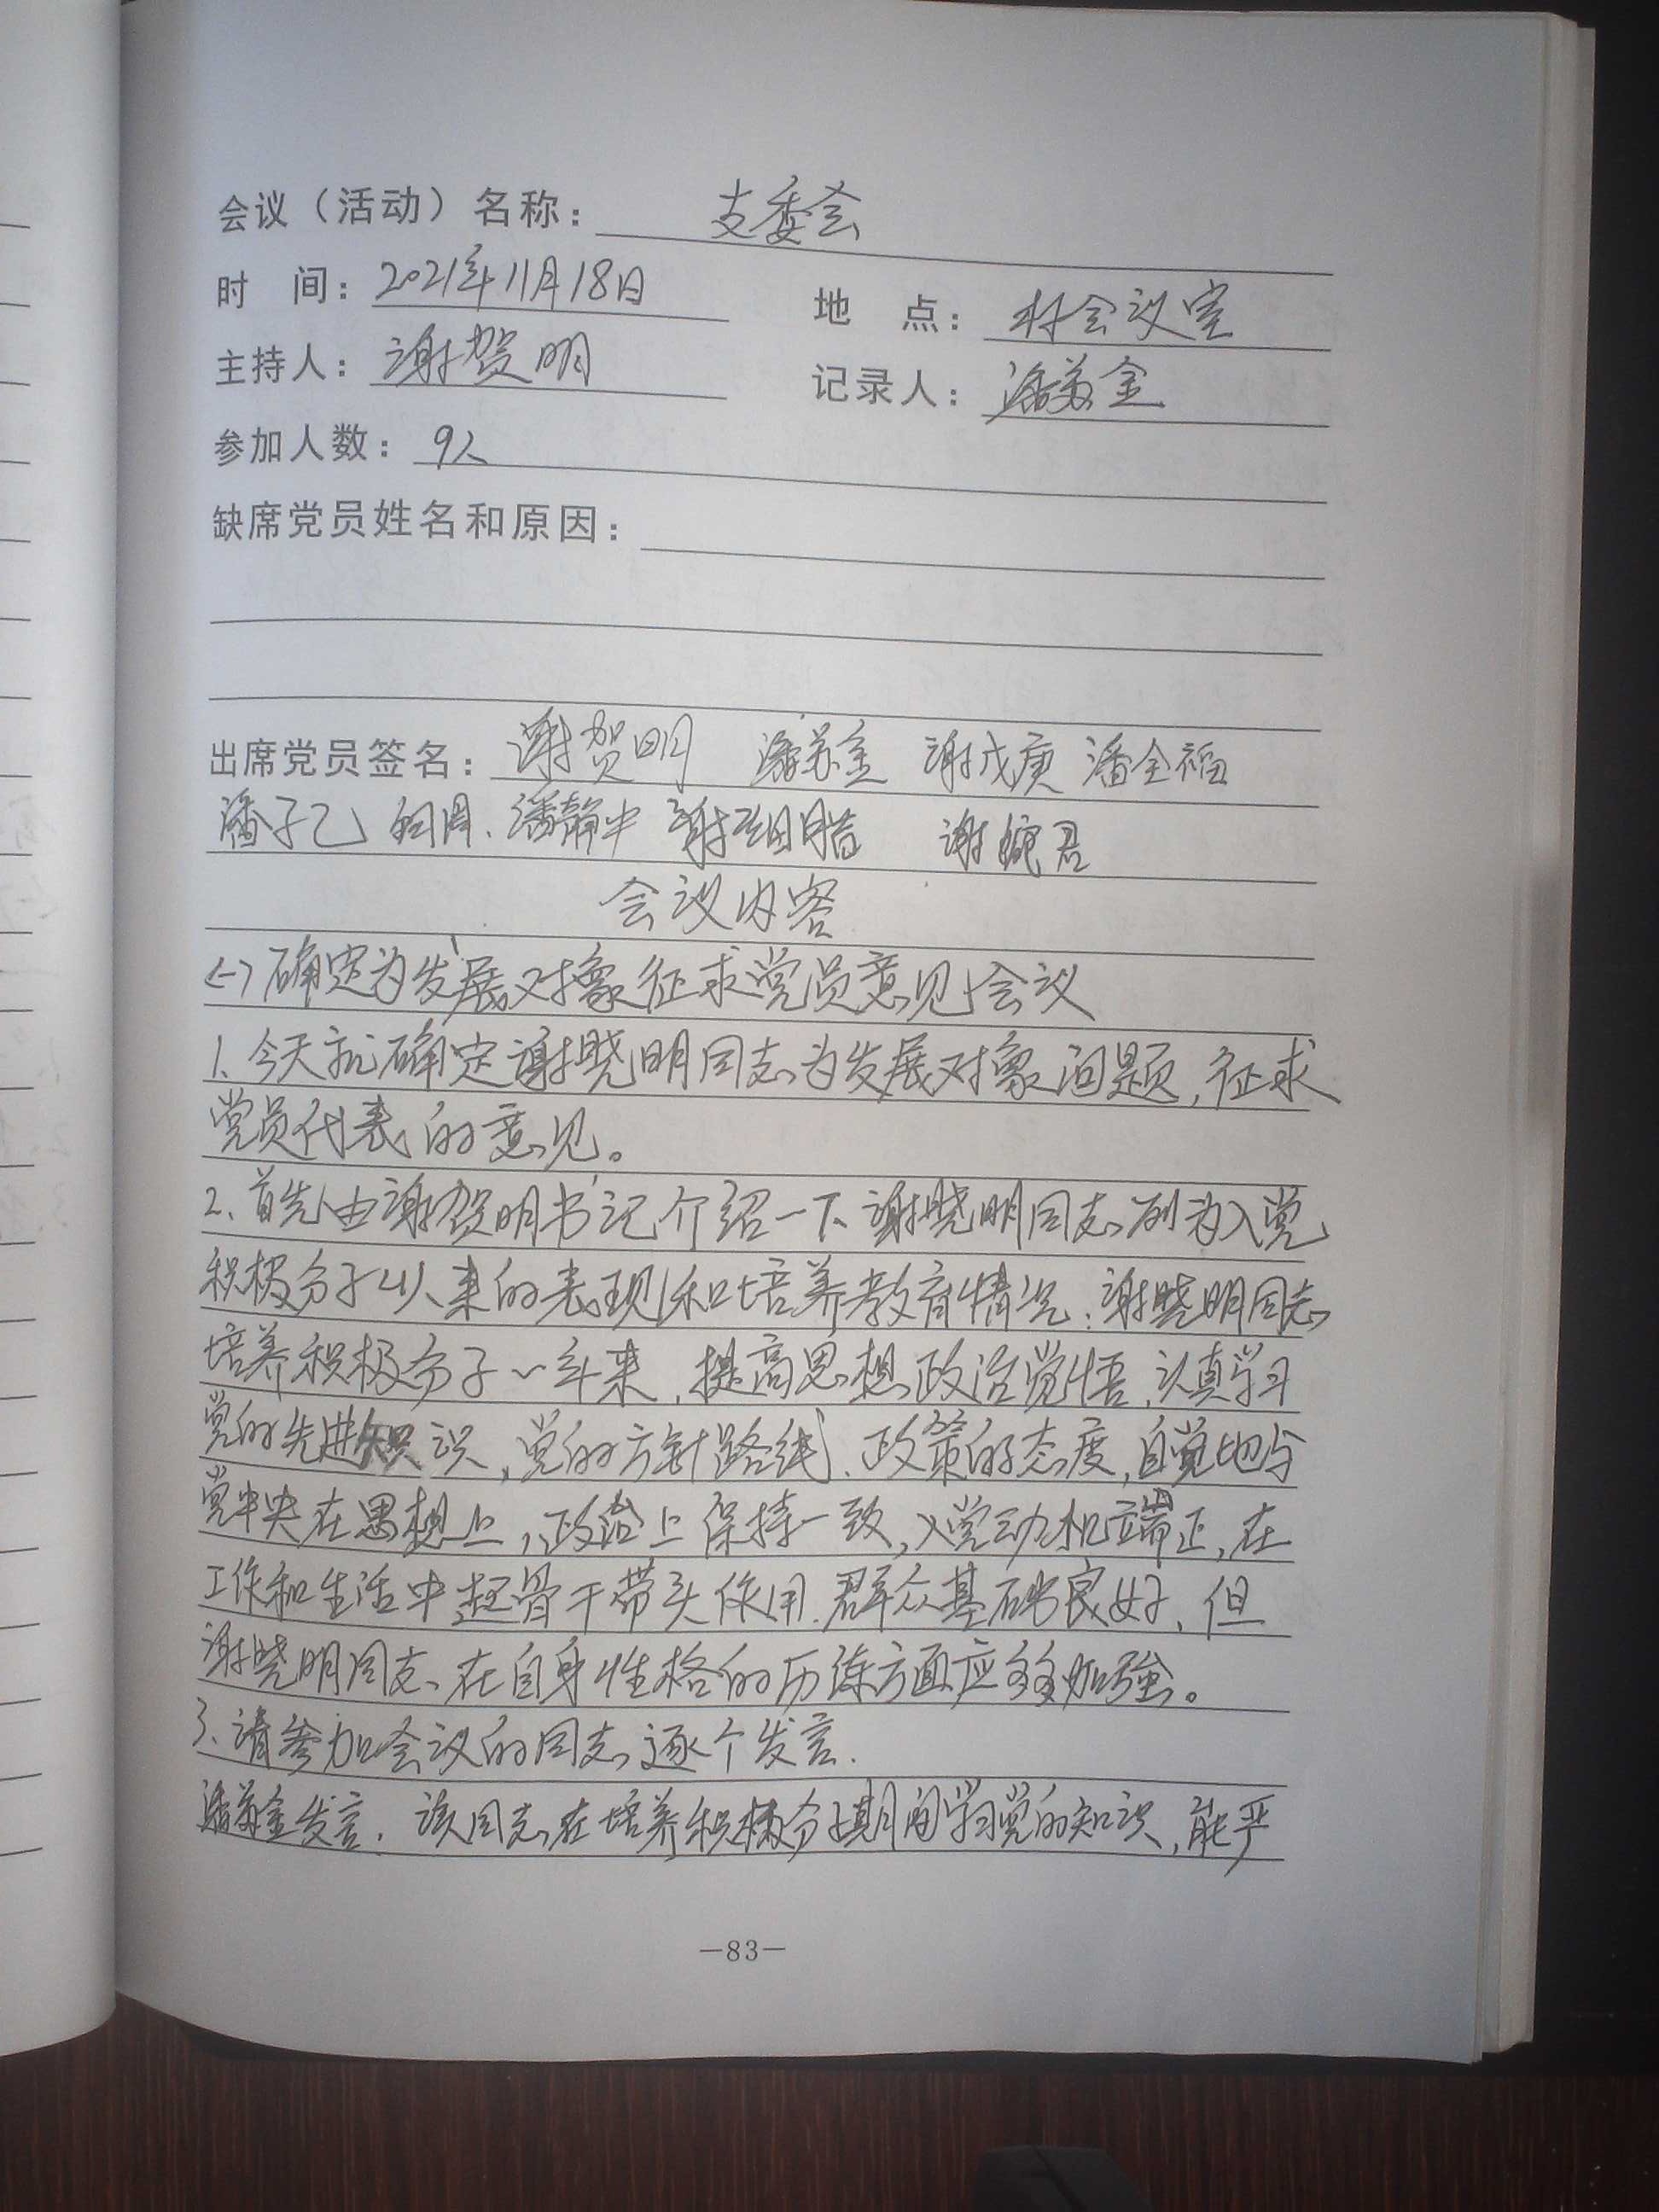 会议（活动）名称： 支委会
时 间：2021年11月18日 地 点： 村会议室
主持人：谢贺明 记录人：潘苏金
参加人数：9人
缺席党员姓名和原因：
出席党员签名：谢贺明 潘苏金 谢戊庚 潘全福
潘子乙 潘静中 谢 谢婉君
会议内容
(一)确定为发展对象征求党员意见会议
1、今天就确定谢晓明同志为发展对象问题，征求
党员代表的意见。
2、首先由谢贺明书记介绍一下谢晓明同志列为入党
积极分子以来的表现和培养教育情况：谢晓明同志
培养积极分子一年来，提高思想政治觉悟，认真学习
党的先进知识，党的方针路线、政策的态度，自觉地与
党中央在思想上，政治上保持一致，入党动机端正，在
工作和生活中起骨干带头作用，群众基础良好，但
谢晓明同志在自身性格的历练方面应多多加强。
3、请参加会议的同志逐个发言.
潘苏金发言：该同志在培养积极分子期间学习党的知识，能严
—83—